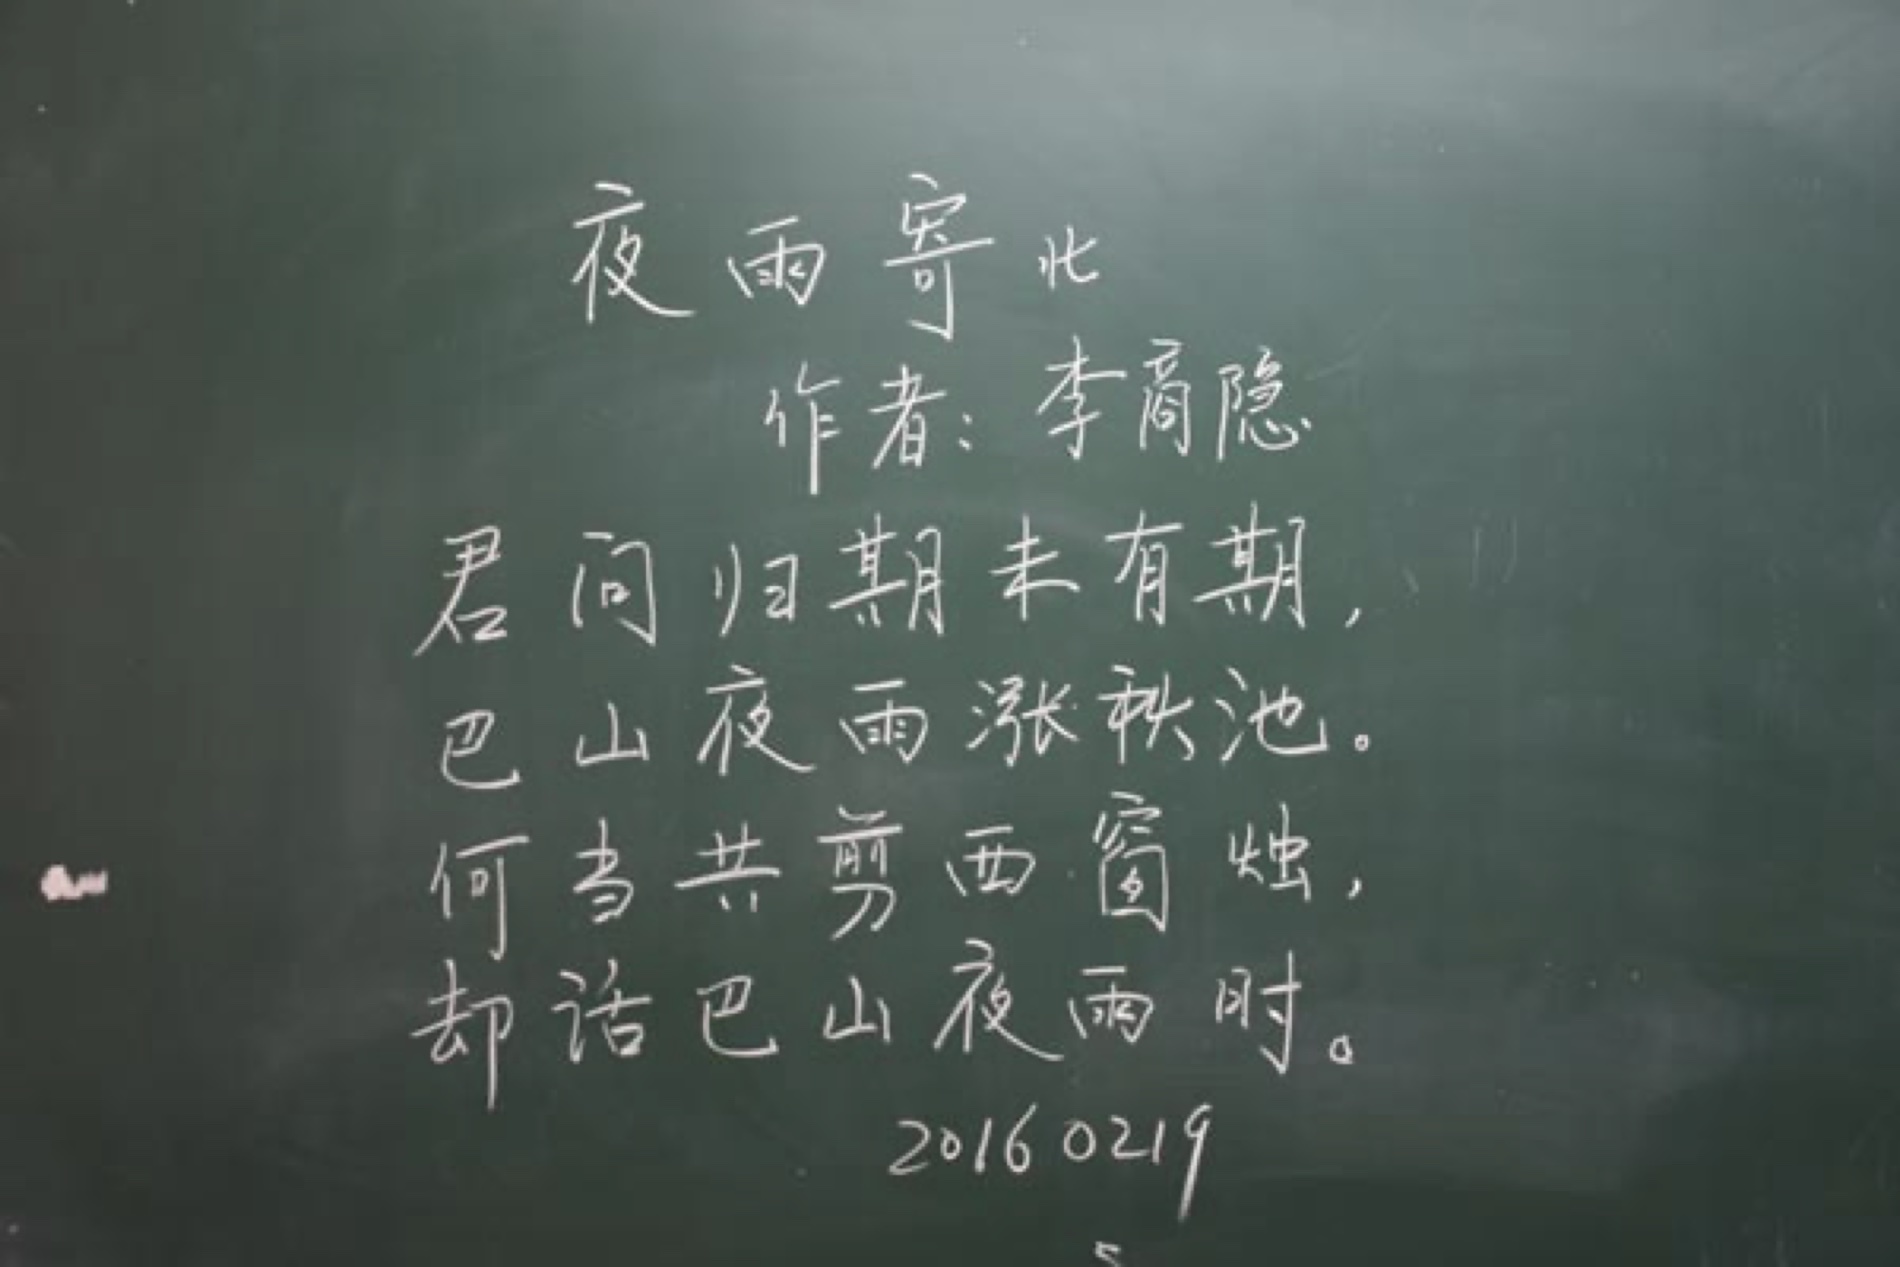 夜雨寄北
作者：李商隐
君问归期未有期，
巴山夜雨涨秋池。
何当共剪西窗烛，
却话巴山夜雨时。
20160219